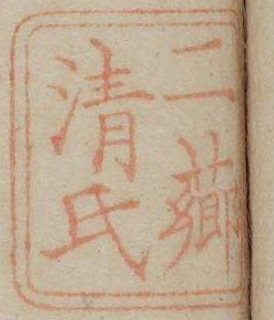 二薌
清氏